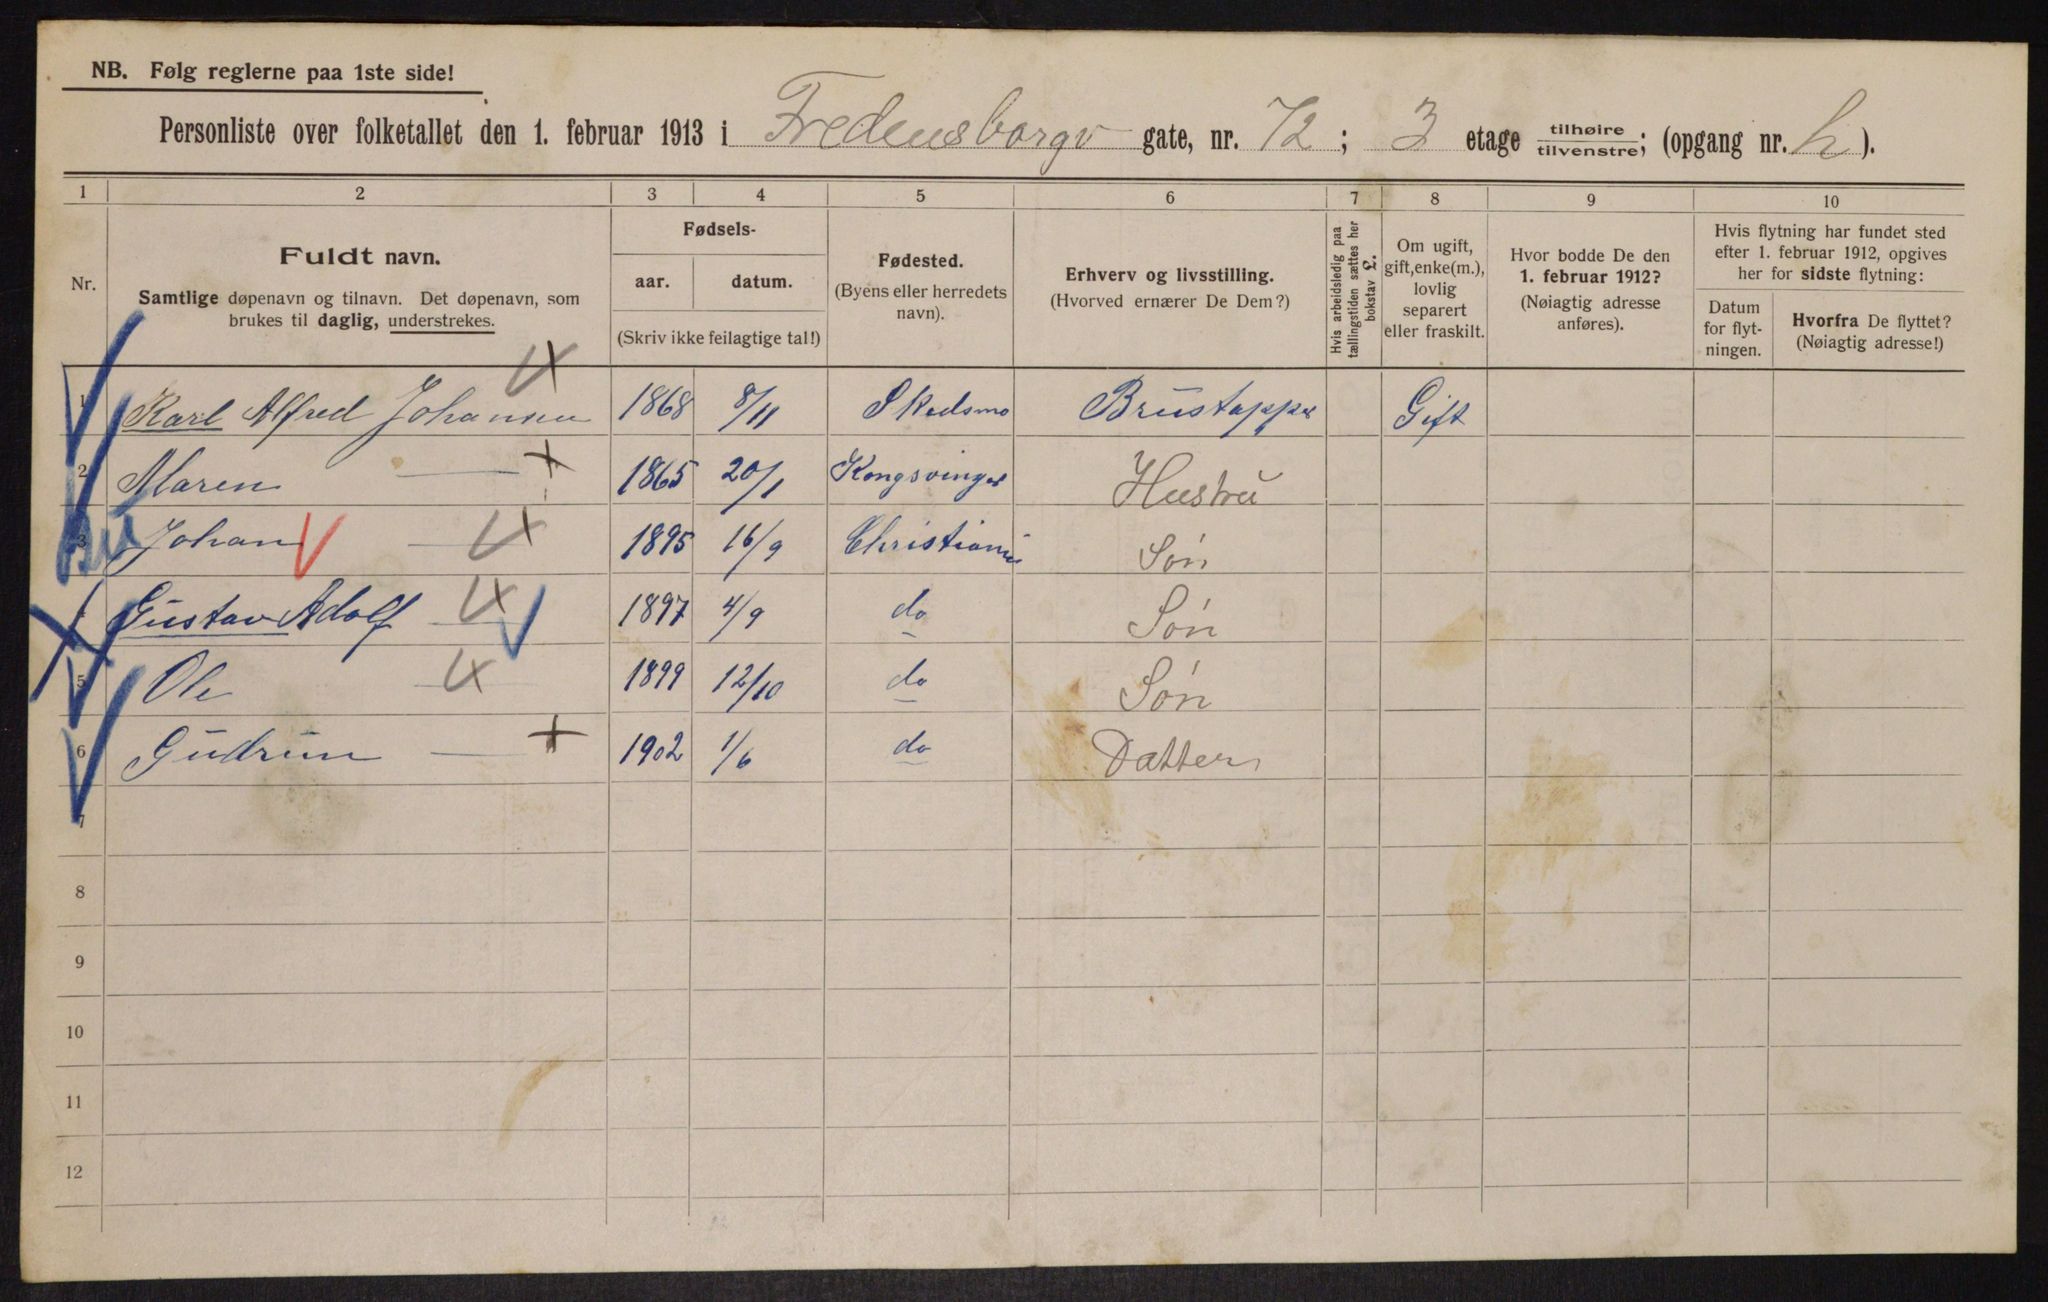 NB. Følg reglerne paa 1ste side!
Personliste over folketallet den 1. februar 1913 i Fredensborgv gate, nr. 72; 3 etage tilhøire/tilvenstre; (opgang nr. h).
1 2 3 4 5 6 7 8 9 10
Nr.
Fuldt navn.
Samtlige døpenavn og tilnavn. Det døpenavn, som
brukes til daglig, understrekes.
Fødsels-
aar. datum.
(Skriv ikke feilagtige tal!)
Fødested.
(Byens eller herredets
navn).
Erhverv og livsstilling.
(Hvorved ernærer De Dem?)
Hvis arbeidsledig paa
tællingstiden sættes her
bokstav L.
Om ugift,
gift, enke(m.),
lovlig
separert
eller fraskilt.
Hvor bodde De den
1. februar 1912?
(Nøiagtig adresse
anføres).
Hvis flytning har fundet sted
efter 1. februar 1912, opgives
her for sidste flytning:
Datum
for flyt-
ningen.
Hvorfra De flyttet?
(Nøiagtig adresse!)
1 Karl Alfred Johansen 1868 8/11 Skedsmo Brustapper Gift
2 Maren — 1865 20/1 Kongsvinger Hustru
3 Johan — 1895 16/9 Christiania Søn
4 Gustav Adolf — 1897 4/9 do Søn
5 Ole — 1899 12/10 do Søn
6 Gudrun — 1902 1/6 do Datter
7
8
9
10
11
12